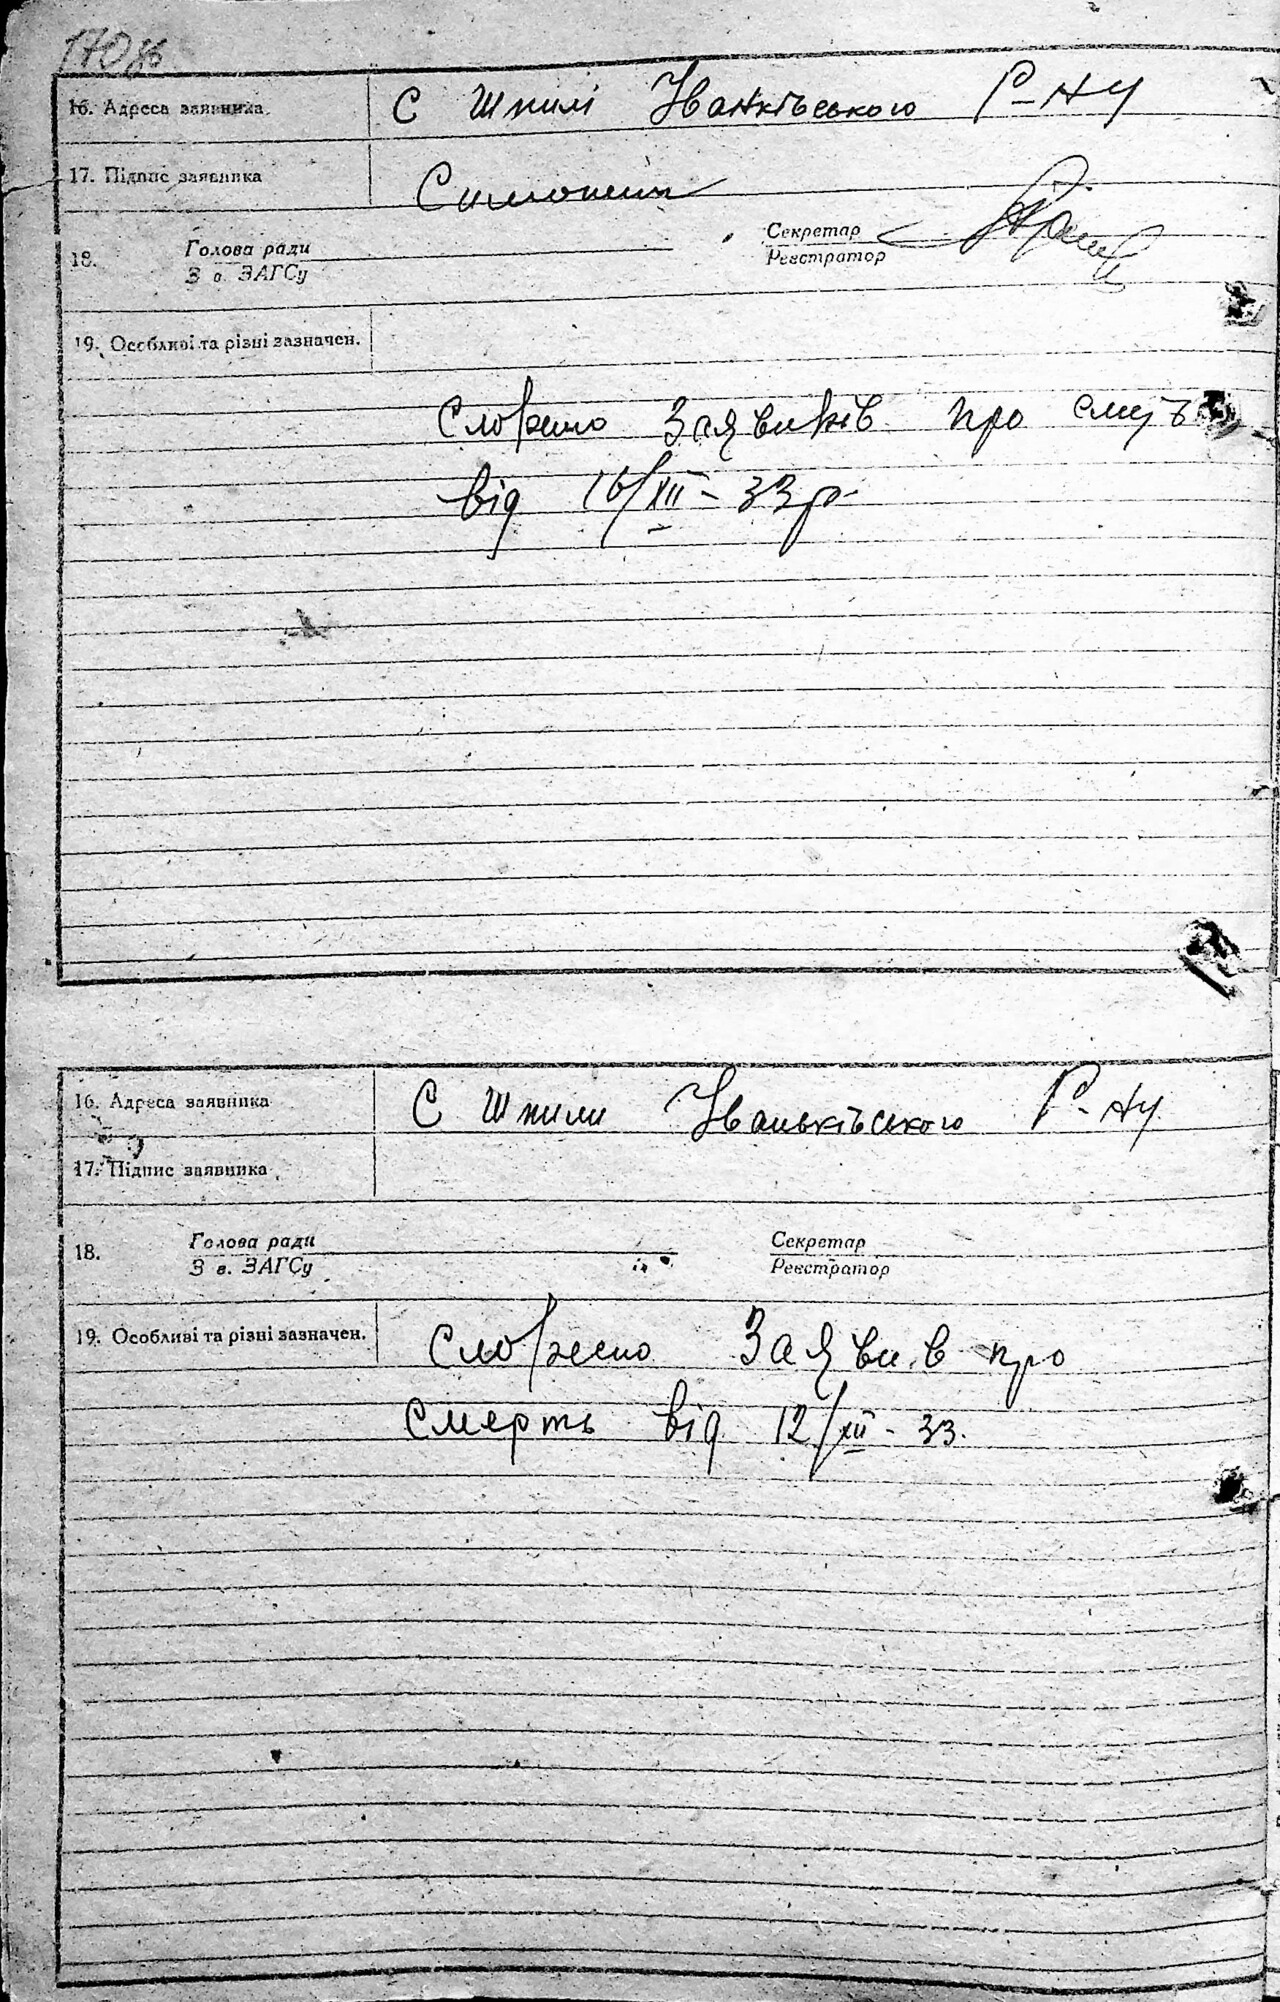 170зв
16. Адреса заявника. С Шпилі Іванківського Р-ну
17. Підпис заявника
18. Голова ради Секретар
З в. ЗАГСу Реєстратор
19. Особливі та різні зазначен.
Сложено Заявиків про
від 16/XII - 33 р.
16. Адреса заявника С Шпили Іваньківського Р-ну
17. Підпис заявника
18. Голова ради Секретар
З в. ЗАГСу Реєстратор
19. Особливі та різні зазначен. Сложено Заяви.в про
Смерть від 12/XII - 33.